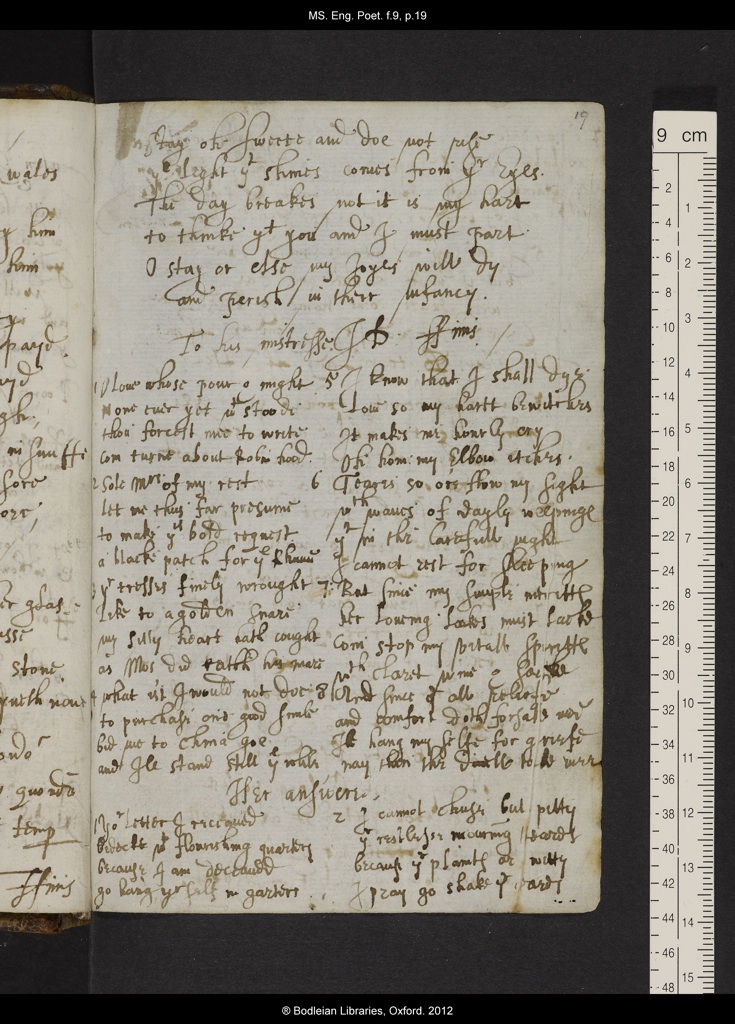 MS. Eng. Poet. f.9, p.19
19
Stay oh sweete and doe not rise
ye light yt shines comes from yr Eyes.
The day breakes not it is my hart
to thinke yt you and I must part
O stay or else my Joyes will dy
and perish in their infancy.
To his mistresse. ffinis.
1 O Love whose power o might
None ever yet wthstoode
thou forcest mee to write
Com turne about Robin hood.
2 Sole Mrs of my rest
let me thus far presume
to make ys bold request
a black patch for ye Rhume
3 yr tresses finely wrought
like to a golden snare
my silly heart hath cought
as Mos did catch his mare
4 what ist I would not doe
to purchase one good smile
bid me to China goe
and Ile stand still ye while
5 I know that I shall dye
Love so my hartt bewitches
It makes me hourly cry
Oh how my Elbow itches.
6 Teares so ore flow my sight
wth waves of dayly weepinge
yt in the Carefull night
I cannot rest for sleeping
7 But since my simple merritts
her loveing lookes must lacke
Com stop my vitall spiritts
wth claret wine &
8 And since all
and comfort doth forsake mee
Ile hang my selfe for greife
nay then the Divell take mee
Her answere.
1 Yor letter I received
bedeckt wth flourishing quarters
because I am deceaved
go hang yr selfe in garters
2 I cannot chuse but pitty
yr restlesse mourning teares
because yr plaints are witty
I pray go shake yr eares
wales
him
him
payd
in snuffe
sore
glas
Stone
quondā
temp
ffinis
9 cm
2
4
6
8
10
12
14
16
18
20
22
24
26
28
30
32
34
36
38
40
42
44
46
48
1
2
3
4
5
6
7
8
9
10
11
12
13
14
15
® Bodleian Libraries, Oxford. 2012